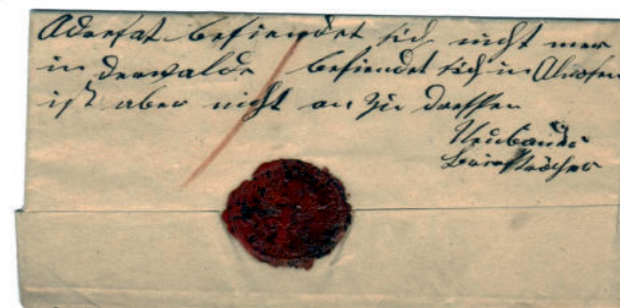 Adersat befiendet sich nicht mer
in derwalde befiendet sich in Alrosen
ist aber nicht an zu dreffen
Neubauer
Briefträcher